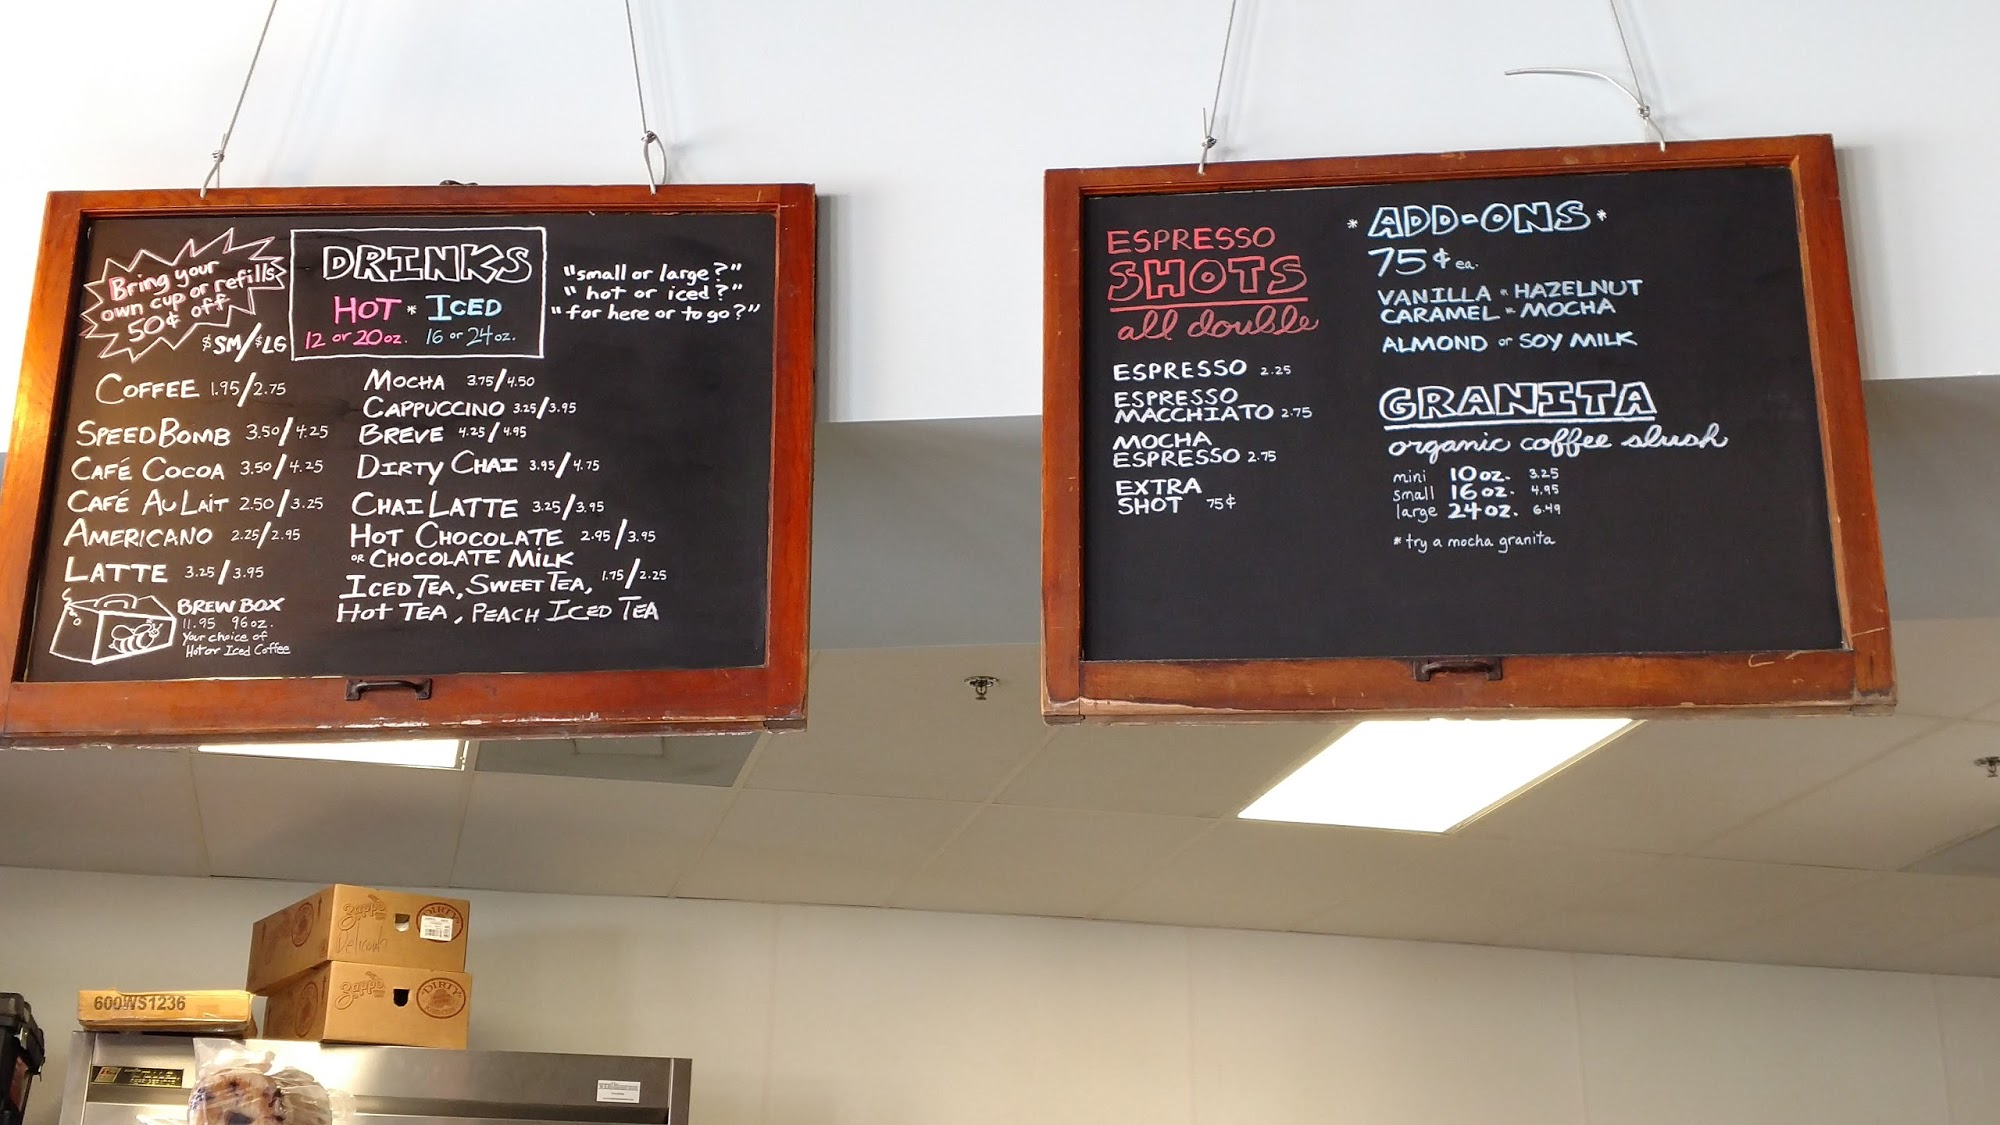 Bring your
own cup or refills
50¢ off
$SM/$LG
DRINKS
HOT * ICED
12 or 20oz. 16 or 24oz.
"small or large?"
"hot or iced?"
"for here or to go?"
COFFEE 1.95/2.75
SPEEDBOMB 3.50/4.25
CAFÉ COCOA 3.50/4.25
CAFÉ AU LAIT 2.50/3.25
AMERICANO 2.25/2.95
LATTE 3.25/3.95
BREW BOX
11.95 96oz.
Your choice of
Hot or Iced Coffee
MOCHA 3.75/4.50
CAPPUCCINO 3.25/3.95
BREVE 4.25/4.95
DIRTY CHAI 3.95/4.75
CHAI LATTE 3.25/3.95
HOT CHOCOLATE 2.95/3.95
OR CHOCOLATE MILK
ICED TEA, SWEET TEA, 1.75/2.25
HOT TEA, PEACH ICED TEA
ESPRESSO
SHOTS
all double
ESPRESSO 2.25
ESPRESSO
MACCHIATO 2.75
MOCHA
ESPRESSO 2.75
EXTRA
SHOT 75¢
* ADD-ONS *
75¢ ea.
VANILLA * HAZELNUT
CARAMEL * MOCHA
ALMOND or SOY MILK
GRANITA
organic coffee slush
mini 10oz. 3.25
small 16oz. 4.95
large 24oz. 6.49
*try a mocha granita
Zapp's
DIRTY
Zapp's
DIRTY
600WS1236